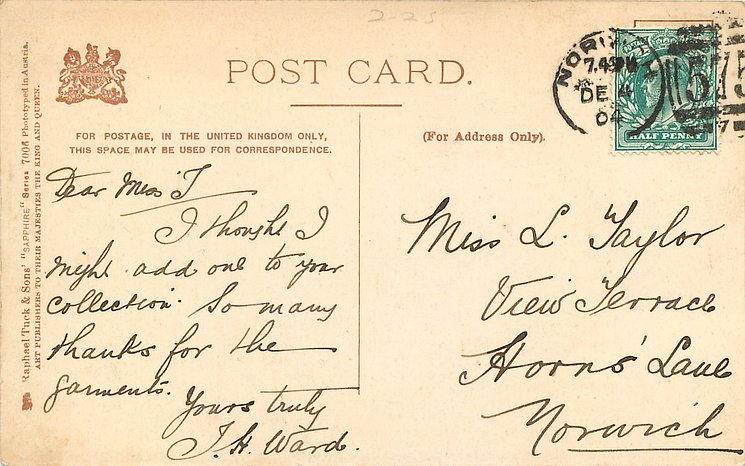 2-25
POST CARD.
FOR POSTAGE, IN THE UNITED KINGDOM ONLY,
THIS SPACE MAY BE USED FOR CORRESPONDENCE.
(For Address Only).
Raphael Tuck & Sons' "SAPPHIRE" Series 7006 Phototyped in Austria.
ART PUBLISHERS TO THEIR MAJESTIES THE KING AND QUEEN.
7.45PM
DE 4
04
575
HALF PENNY
Dear Miss T
I thought I
might add one to your
collection. So many
thanks for the
garments.
Yours truly
J. H. Ward.
Miss L. Taylor
View Terrace
Horns' Lane
Norwich